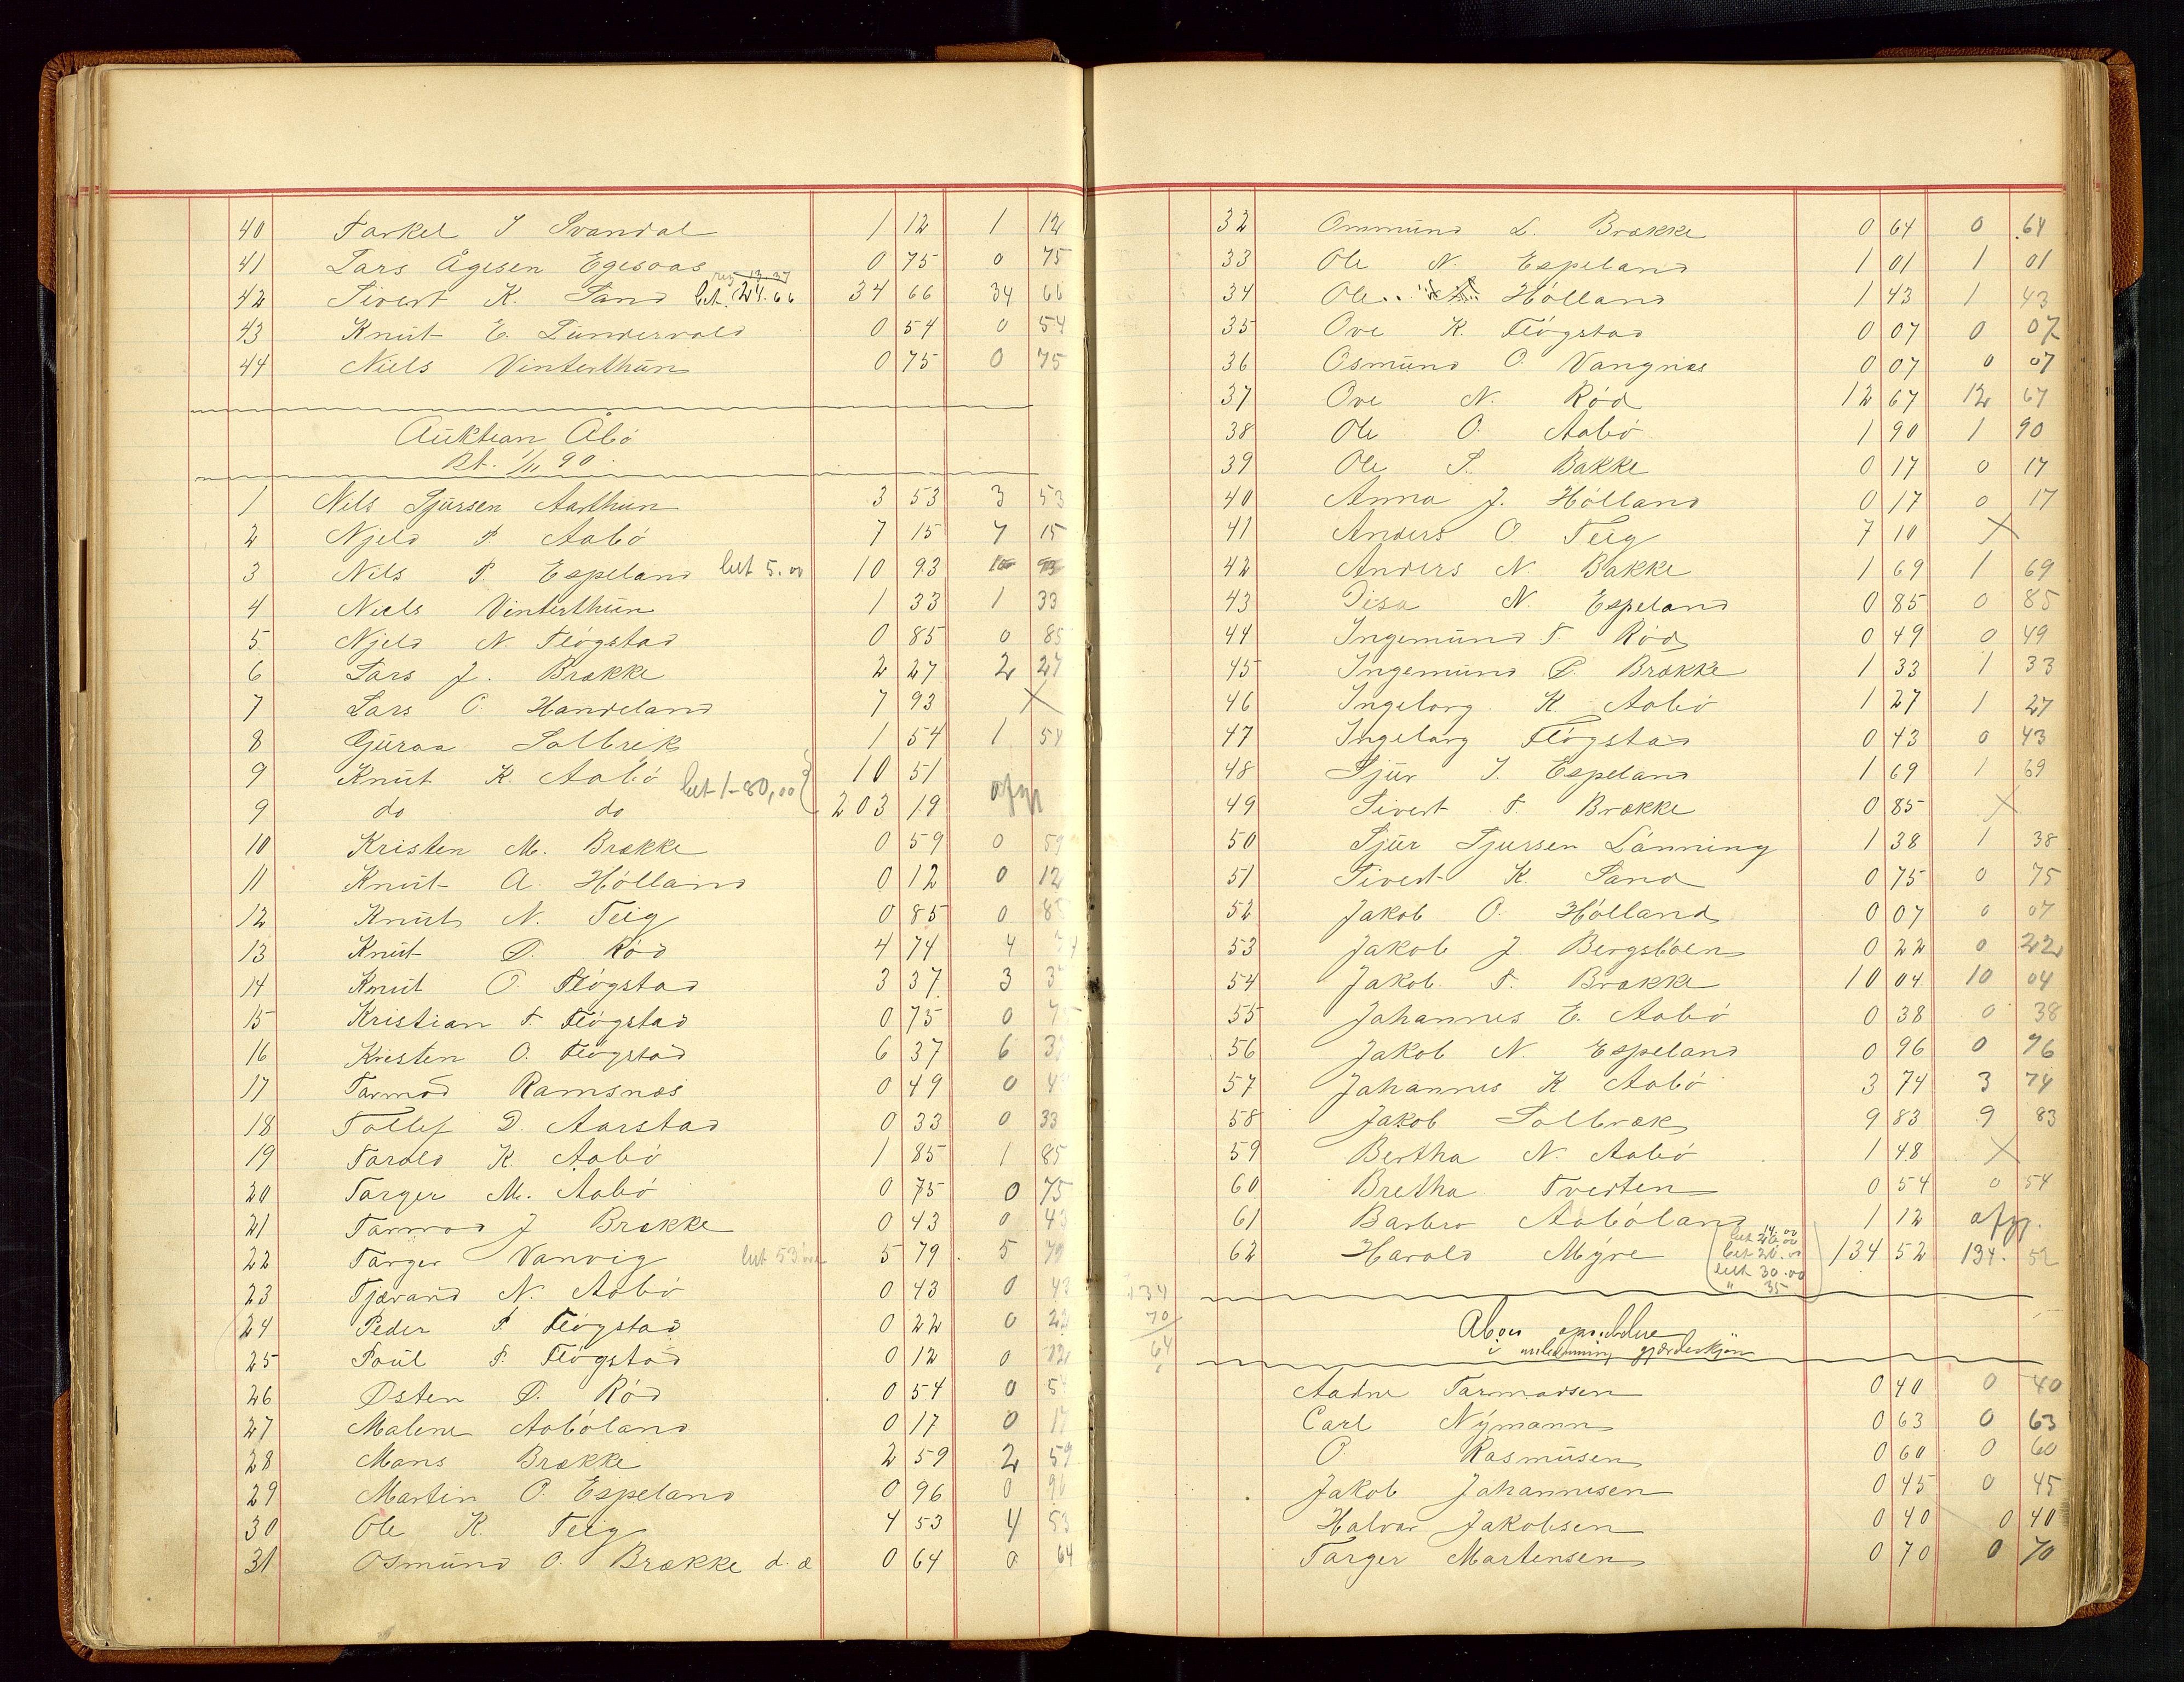 40 Torkel S Svandal 1 12 1 12
41 Lars Ågesen Egesaas 0 75 0 75
42 Sivert K. Sand bet. 24.66 34 66 34 66
43 Knut E. Lundervold 0 54 0 54
44 Niels Vinterthun 0 75 0 75
Auktion Åbö
Bt. 1/11 90
1 Nils Sjursen Aarthun 3 53 3 53
2 Njeld T. Aabö 7 15 7 15
3 Nils T. Espeland bet 5.00 10 93 10 93
4 Niels Vinterthun 1 33 1 33
5 Njeld N. Flögstad 0 85 0 85
6 Lars J. Brække 2 27 2 27
7 Lars O. Handeland 7 93 X
8 Guroa Solbrek 1 54 1 54
9 Knut K. Aabö 10 51
9 do do bet 1-80,00 203 19 afgj
10 Kristen M. Brække 0 59 0 59
11 Knut A. Hölland 0 12 0 12
12 Knut N. Teig 0 85 0 85
13 Knut Ø. Rød 4 74 4 74
14 Knut O. Flögstad 3 37 3 37
15 Kristian T. Flögstad 0 75 0 75
16 Kristen O. Flögstad 6 37 6 37
17 Tormod Ramsnæs 0 49 0 49
18 Tollef D. Aarstad 0 33 0 33
19 Torold K. Aabö 1 85 1 85
20 Torger M. Aabö 0 75 0 75
21 Tormod J Brække 0 43 0 43
22 Torger Vanvig bet 53 5 79 5 79
23 Tjerand N. Aabö 0 43 0 43
24 Peder T. Flögstad 0 22 0 22
25 Poul T. Flögstad 0 12 0 12
26 Østen Ø. Rød 0 54 0 54
27 Malene Aaböland 0 17 0 17
28 Mons Brække 2 59 2 59
29 Martin O. Espeland 0 96 0 96
30 Ole K. Teig 4 53 4 53
31 Osmund O. Brække d. æ 0 64 0 64
32 Ommund L. Brække 0 64 0 64
33 Ole N. Espeland 1 01 1 01
34 Ole Hölland 1 43 1 43
35 Ove K. Flögstad 0 07 0 07
36 Osmund O. Vangnæs 0 07 0 07
37 Ove N. Rød 12 67 12 67
38 Ole O. Aabö 1 90 1 90
39 Ole S. Bakke 0 17 0 17
40 Anna J. Hölland 0 17 0 17
41 Anders O. Teig 7 10 X
42 Anders N. Bakke 1 69 1 69
43 Disa N. Espeland 0 85 0 85
44 Ingemund T. Rød 0 49 0 49
45 Ingemund Ø. Brække 1 33 1 33
46 Ingeborg K. Aabö 1 27 1 27
47 Ingeborg Flögstad 0 43 0 43
48 Sjur S. Espeland 1 69 1 69
49 Sivert T. Brække 0 85 X
50 Sjur Sjursen Lönning 1 38 1 38
51 Sivert K. Sand 0 75 0 75
52 Jakob O. Hölland 0 07 0 07
53 Jakob J. Bergsböen 0 22 0 22
54 Jakob T. Brække 10 04 10 04
55 Johannes E. Aabö 0 38 0 38
56 Jakob N. Espeland 0 96 0 96
57 Johannes K Aabö 3 74 3 74
58 Jakob Solbræk 9 83 9 83
59 Bertha N. Aabö 1 48 X
60 Bretha Tveten 0 54 0 54
61 Barbro Aaböland 1 12 afgj.
62 Harald Mÿre 134 52 134. 52
bet 26.00
bet 30.00
" 35
134
70
64
Aadne Tormodsen 0 40 0 40
Carl Nÿmann 0 63 0 63
O. Rasmusen 0 60 0 60
Jakob Johannesen 0 45 0 45
Halvor Jakobsen 0 40 0 40
Torger Martensen 0 70 0 70